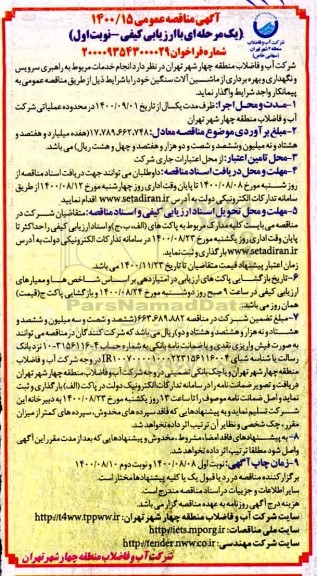 آگهی مناقصه عمومی ۱۴۰۰/۱۵
(یک مرحله ای با ارزیابی کیفی - نوبت اول)
شماره فراخوان ۲۰۰۰۰۹۳۵۴۳۰۰۰۰۲۹
شرکت آب و فاضلاب
منطقه ۴ شهر تهران
(سهامی خاص)
شرکت آب و فاضلاب منطقه چهار شهر تهران در نظر دارد انجام خدمات مربوط به راهبری سرویس
و نگهداری و بهره برداری از ماشین آلات سنگین خود را با شرایط ذیل از طریق مناقصه عمومی به
پیمانکار واجد شرایط واگذار نماید.
۱-مدت و محل اجرا: ظرف مدت یکسال از تاریخ ۱۴۰۰/۰۹/۰۱ در محدوده عملیاتی شرکت
آب و فاضلاب منطقه چهار شهر تهران
۲-مبلغ برآوردی موضوع مناقصه معادل: ۱۷,۷۸۹,۶۶۲,۷۴۸ (هفده میلیارد و هفتصد و
هشتاد و نه میلیون وششصد و شصت و دو هزار و هفتصد و چهل و هشت ریال) می باشد.
۳-محل تامین اعتبار: از محل اعتبارات جاری شرکت
۴-مهلت و محل دریافت اسناد مناقصه: داوطلبان می توانند جهت دریافت اسناد مناقصه از
روز شنبه مورخ ۱۴۰۰/۰۸/۰۸ تا پایان وقت اداری روز چهارشنبه مورخ ۱۴۰۰/۰۸/۱۲ از طریق
سامانه تدارکات الکترونیکی دولت به آدرس www.setadiran.ir اقدام نمایند
۵-مهلت و محل تحویل اسناد ارزیابی کیفی و اسناد مناقصه: متقاضیان شرکت در
مناقصه می بایست کلیه مدارک مربوط به پاکت های (الف،ب،ج) و اسناد ارزیابی کیفی را حداکثر تا
پایان وقت اداری روز یکشنبه مورخ ۱۴۰۰/۰۸/۲۳ در سامانه تدارکات الکترونیکی دولت به آدرس
www.setadiran.ir بارگذاری و ثبت نماید.
زمان اعتبار پیشنهاد قیمت متقاضیان تا تاریخ ۱۴۰۰/۱۱/۲۳ می باشد
۶-تاریخ بازگشایی پاکت های ارزیابی در امتیازدهی بر اساس شاخص ها و معیارهای
ارزیابی کیفی در ساعت ۹ صبح روز دوشنبه مورخ ۱۴۰۰/۰۸/۲۴ و بازگشایی پاکت ج(قیمت)
همان روز می باشد.
۷-مبلغ تضمین شرکت در مناقصه ۶۶۳,۶۸۹,۸۸۲ (ششصد و شصت و سه میلیون و ششصد و
هشتاد و نه هزار و هشتصد و هشتاد و دو) ریال می باشد که شرکت کنندگان در مناقصه می توانند
به صورت فیش واریزی نقدی و یا ضمانت نامه بانکی به شماره حساب
رسالت با شناسه شبای در وجه شرکت آب و فاضلاب
منطقه چهار شهر تهران و یا چک بانکی تضمینی در وجه شرکت آب و فاضلاب منطقه چهار شهر تهران
دریافت و تصویر ضمانت نامه را در سامانه تدارکات الکترونیک دولت در پاکت (الف) بارگذاری و ثبت
نماید و اصل ضمانت نامه موصوف را تا ساعت ۱۴ روز یکشنبه مورخ ۱۴۰۰/۰۸/۲۳ به دبیرخانه این
شرکت تسلیم نماید و به پیشنهادهایی که فاقد سپرده های مخدوش، سپرده های کمتر از میزان
مقرر، چک شخصی و نظایر آن ترتیب اثر داده نخواهد شد.
۸- به پیشنهادهای فاقد امضا، مشروط، مخدوش و پیشنهادهایی که بعد از مدت مقرر این آگهی
واصل شود مطلقا ترتیب اثر داده نخواهد شد.
۹-زمان چاپ آگهی: نوبت اول ۱۴۰۰/۰۸/۰۸ و نوبت دوم ۱۴۰۰/۰۸/۱۰
برگزار کننده مناقصه در رد یا قبول یک یا کلیه پیشنهادها مختار است.
سایر اطلاعات و جزییات در اسناد مناقصه مندرج است.
هزینه درج آگهی روزنامه به عهده مناقصه گزار می باشد.
سایت شرکت آب و فاضلاب منطقه چهار شهر تهران: http://t4ww.tppww.ir
سایت ملی مناقصات: http://iets.mporg.ir
سایت شرکت مهندسی: http://tender.nww.co.ir
شرکت آب و فاضلاب منطقه چهار شهر تهران